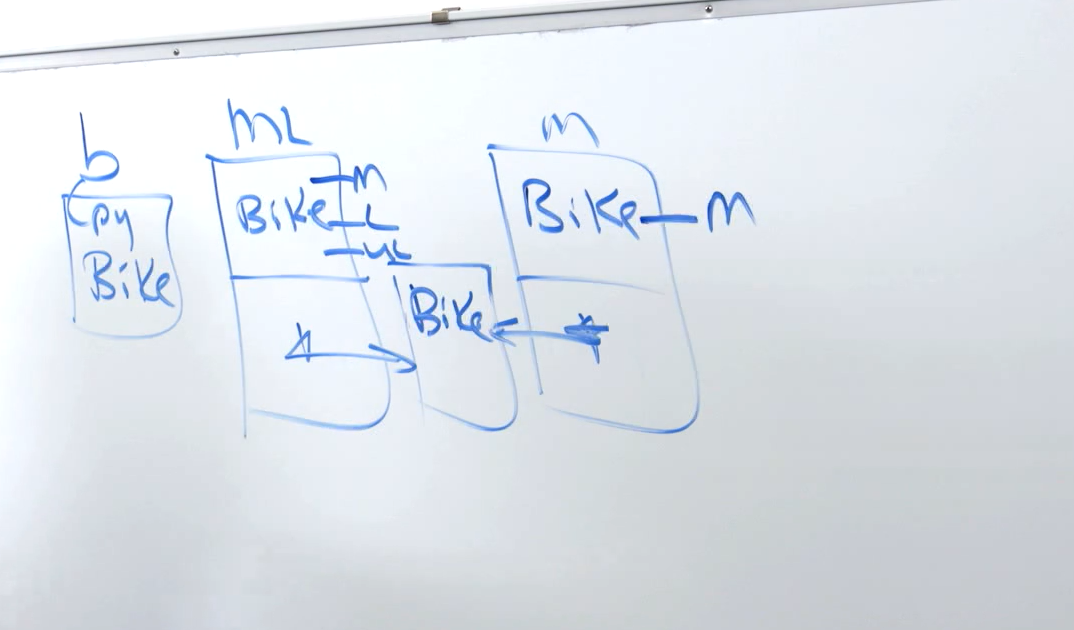 b
Cpy
Bike
ML
M
Bike
L
UL
*
Bike
M
Bike
M
*